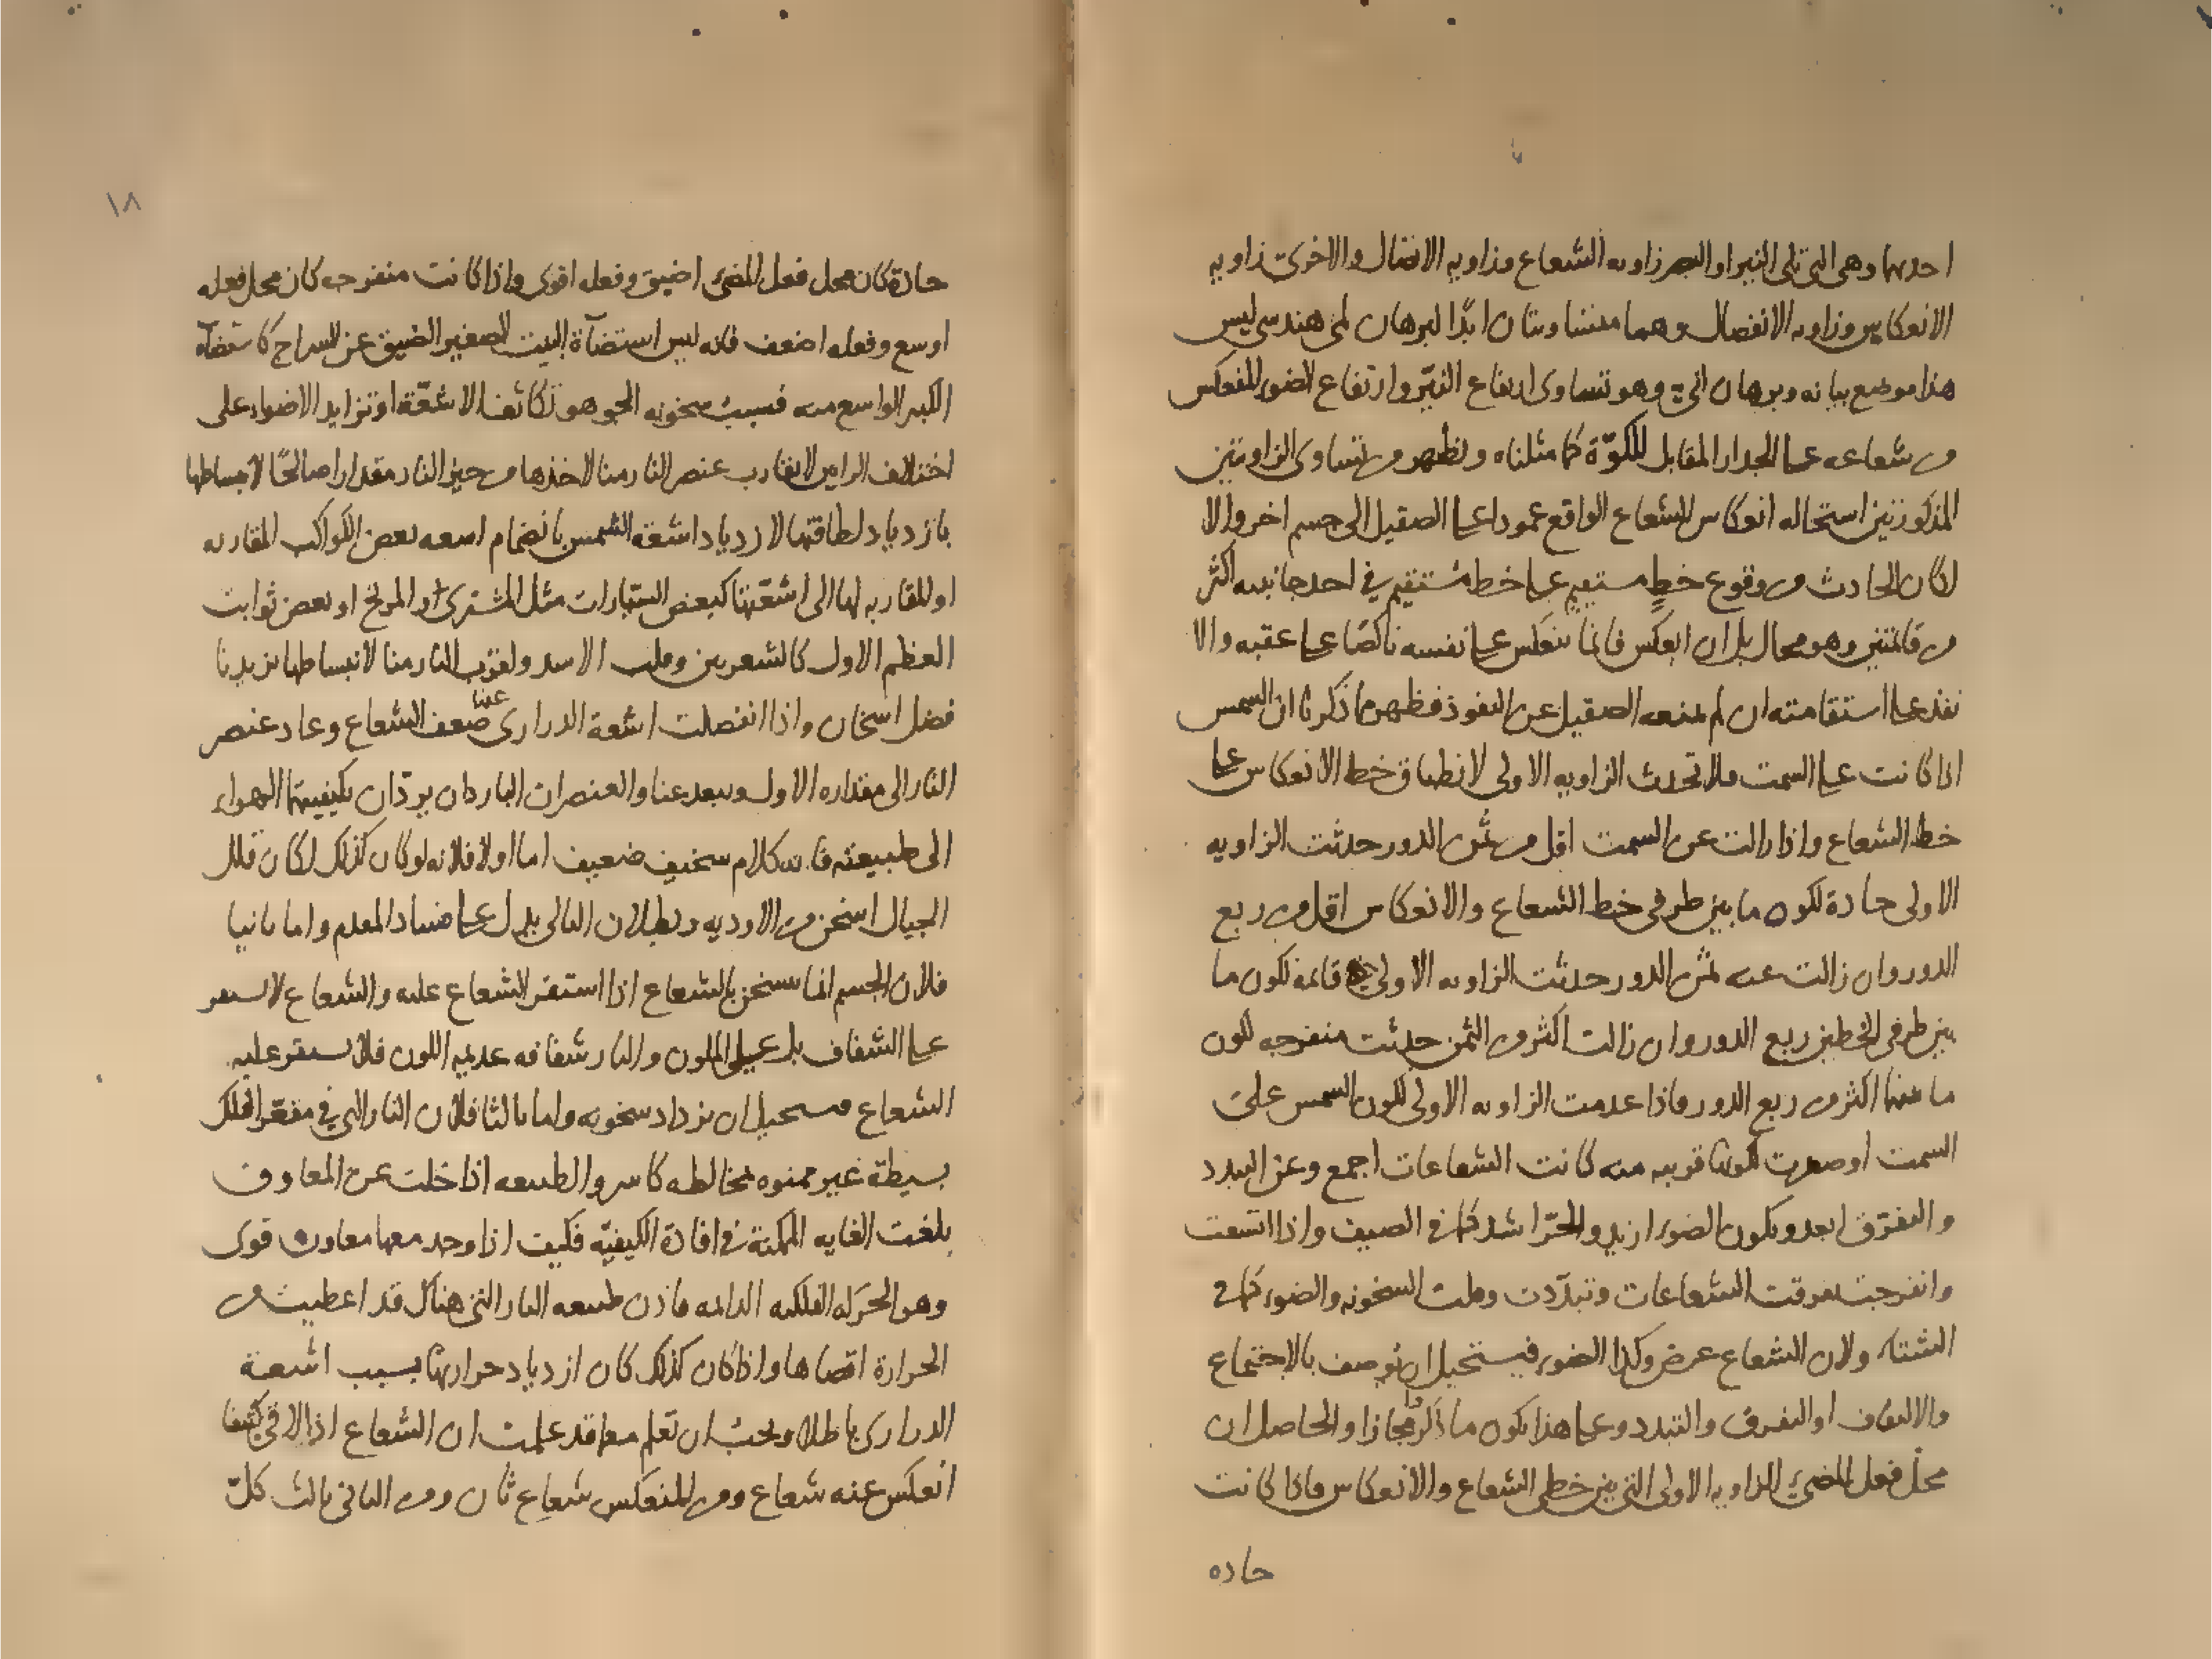 احديهما وهى التى تلى النير او البصر زاويه الشعاع وزاويه الاتصال والاخرى زاويه
الانعكاس وزاويه الانفصال وهما متساويتان ابدًا لبرهان لمى هندسى ليس
هذا موضع بيانه وبرهان انى وهو تساوى ارتفاع النيّر وارتفاع الضوء المنعكس
من شعاعه على الجدار المقابل للكوّة كما مثلناه ويظهر من تساوى الزاويتين
المذكورتين استحاله انعكاس الشعاع الواقع عمودا على الصقيل الى جسم اخر والا
لكان الحادث من وقوع خطٍ مستقيمٍ على خط مستقيم فى احد جانبيه اكثر
من قائمتين وهو محال بل ان انعكس فانما ينعكس على نفسه ناكصًا على عقبه والا
نفذ على استقامته ان لم يمنعه الصقيل عن النفوذ فظهر مما ذكرنا ان الشمس
اذا كانت على السمت فلا تحدث الزاويه الاولى لانطباق خط الانعكاس على
خط الشعاع واذا زالت عن السمت اقل من ثمن الدور حدثت الزاويه
الاولى حادة لكون ما بين طرفى خط الشعاع والانعكاس اقل من ربع
الدور وان زالت عنه ثمن الدور حدثت الزاويه الاولى قائمة لكون ما
بين طرفى الخطين ربع الدور وان زالت اكثر من الثمن حدثت منفرجه لكون
ما بينهما اكثر من ربع الدور فاذا عدمت الزاويه الاولى لكون الشمس على
السمت او صغرت لكونها قريبه منه كانت الشعاعات اجمع وعن التبدد
والتفرّق ابعد ويكون الضوء ازيد والحرّ اشد كما فى الصيف واذا اتسعت
وانفرجت تفرقت الشعاعات وتبدّدت وقلت السخونه والضوء كما فى
الشتاء ولان الشعاع عرض وكذا الضوء فيستحيل ان يوصف بالاجتماع
والالتفاف او التفرق والتبدد وعلى هذا يكون ما ذكر مجازا والحاصل ان
محل فعل المضىء الزاويه الاولى التى بين خطى الشعاع والانعكاس فاذا كانت
حاده
١٨
حادة كان محل فعل المضئ اضيق وفعله اقوى واذا كانت منفرجه كان محل فعله
اوسع وفعله اضعف فانه ليس استضآة البيت الصغير الضيق عن السراج كاستضآة
الكبير الواسع منه فسبب سخونه الجو هو تكاثف الاشعّة او تزايد الاضواء على
اختلاف الرايين لا تقارب عنصر النار منا لاخذها من حيز النار مقدارا صالحًا لانبساطها
بازدياد لطافتها لازدياد اشعة الشمس بانضمام اشعه بعض الكواكب المقارنه
او المقاربه لها الى اشعّتها كبعض السيّارات مثل المشترى او المريخ او بعض ثوابت
العظم الاول كالشعريين وقلب الاسد ولقرب النار منا لانبساطها يزيدنا
فضل اسخان واذا انفصلت اشعة الدرارى عنّا ضعف الشعاع وعاد عنصر
النار الى مقداره الاول وبعد عنا والعنصران الباردان يردّان بكيفيتهما الهواء
الى طبيعته فانه كلام سخيف ضعيف اما اولا فلانه لو كان كذلك لكان قلل
الجبال اسخن من الاوديه وبطلان التالى يدل على فساد المقدم واما ثانيا
فلان الجسم انما يسخن بالشعاع اذا استقر الشعاع عليه والشعاع لا يستقر
على الشفاف بل على الملون والنار شفافه عديمه اللون فلا يستقر عليه
الشعاع فيستحيل ان يزداد سخونه واما ثالثا فلان النار التى فى مقعّر الفلك
بسيطة غير ممنوه بمخالطه كاسر والطبيعه اذا خلت عن المعاوق
بلغت الغايه الممكنة فى افادة الكيفيّه فكيف اذا وجد معها معاون قوى
وهو الحركه الفلكيه الدائمه فاذن طبيعه النار التى هناك قد اعطيت من
الحرارة اقصاها واذا كان كذلك كان ازدياد حرارتها بسبب اشعة
الدرارى باطلا ويجب ان تعلم مما قد علمت ان الشعاع اذا لاقى كثيفا
انعكس عنه شعاع ومن المنعكس شعاع ثان ومن الثانى ثالث كلّ